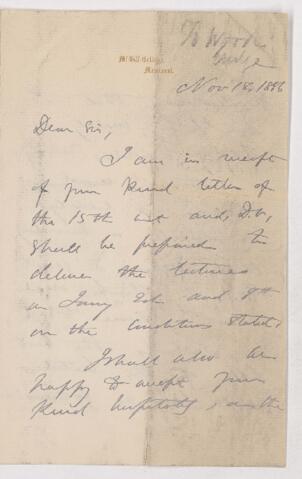 McGill College,
Montreal.
Nov 18, 1886
Dear Sir,
I am in receipt
of your kind letter of
the 15th inst and, D.V.,
shall be prepared to
deliver the lectures
on Jany 7th and 8th
on the conditions stated.
I shall also be
happy to accept your
kind hospitality, as the